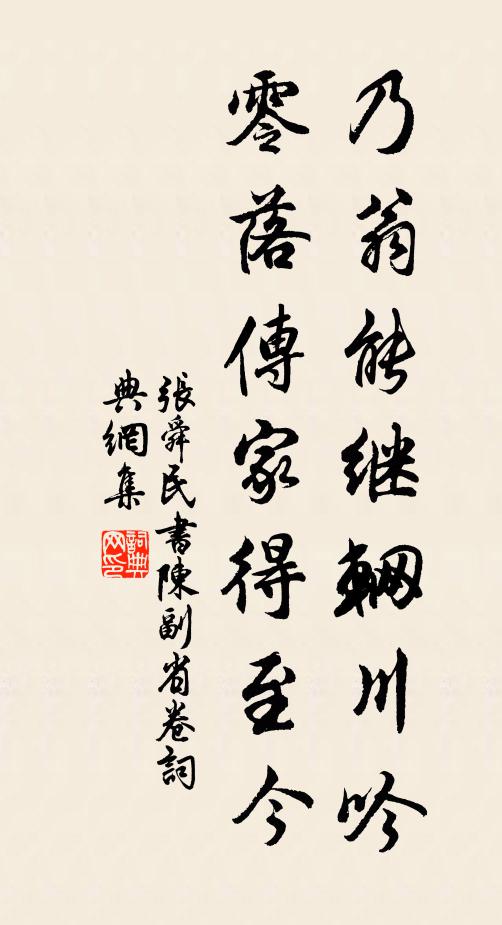 乃翁能继輞川吟
零落傳家得至今
張舜民書陳副省卷詞
典網集
詞典网印